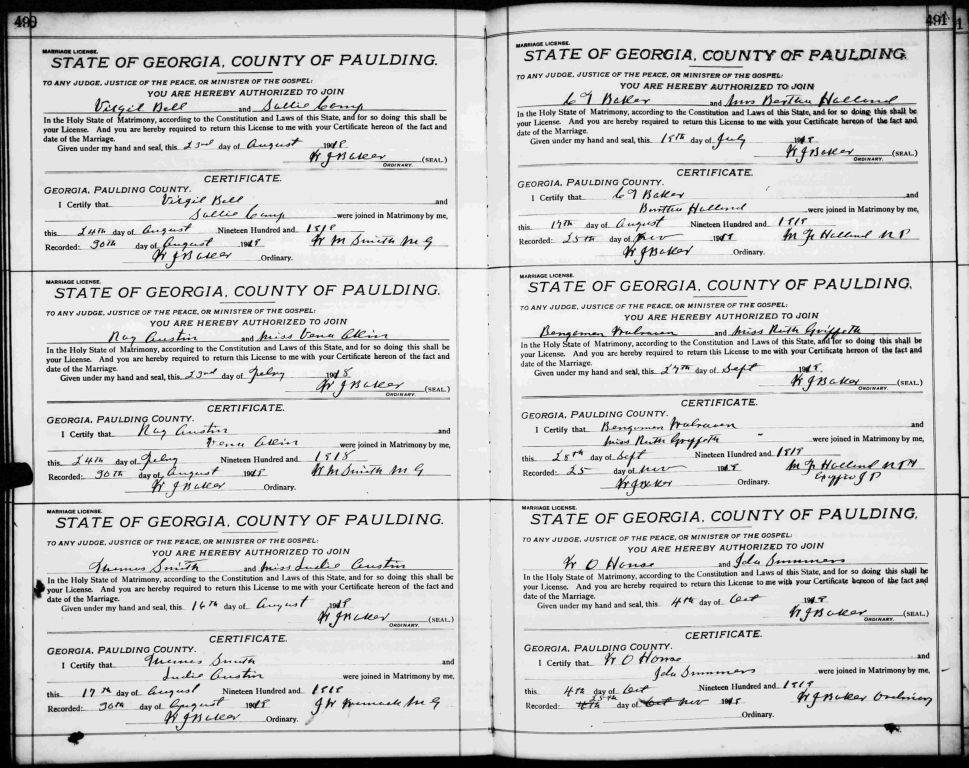 490
MARRIAGE LICENSE.
STATE OF GEORGIA, COUNTY OF PAULDING.
TO ANY JUDGE, JUSTICE OF THE PEACE, OR MINISTER OF THE GOSPEL:
YOU ARE HEREBY AUTHORIZED TO JOIN
Virgil Bell and Sallie Camp
In the Holy State of Matrimony, according to the Constitution and Laws of this State, and for so doing this shall be
your License. And you are hereby required to return this License to me with your Certificate hereon of the fact and
date of the Marriage.
Given under my hand and seal, this 23rd day of August 1918
W J Baker (SEAL.)
ORDINARY.
CERTIFICATE.
GEORGIA, PAULDING COUNTY.
I Certify that Virgil Bell and
Sallie Camp were joined in Matrimony by me,
this 24th day of August Nineteen Hundred and 1918
Recorded: 30th day of August 1918 W M Smith M G
W J Baker Ordinary.
MARRIAGE LICENSE.
STATE OF GEORGIA, COUNTY OF PAULDING.
TO ANY JUDGE, JUSTICE OF THE PEACE, OR MINISTER OF THE GOSPEL:
YOU ARE HEREBY AUTHORIZED TO JOIN
Ray Austin and Miss Vena Akin
In the Holy State of Matrimony, according to the Constitution and Laws of this State, and for so doing this shall be
your License. And you are hereby required to return this License to me with your Certificate hereon of the fact and
date of the Marriage.
Given under my hand and seal, this 23rd day of 1918
W J Baker (SEAL.)
ORDINARY.
CERTIFICATE.
GEORGIA, PAULDING COUNTY.
I Certify that Ray Austin and
Vena Akin were joined in Matrimony by me,
this 24th day of Nineteen Hundred and 1918
Recorded: 30th day of August 1918 W M Smith M G
W J Baker Ordinary.
MARRIAGE LICENSE.
STATE OF GEORGIA, COUNTY OF PAULDING.
TO ANY JUDGE, JUSTICE OF THE PEACE, OR MINISTER OF THE GOSPEL:
YOU ARE HEREBY AUTHORIZED TO JOIN
Smith and Miss Austin
In the Holy State of Matrimony, according to the Constitution and Laws of this State, and for so doing this shall be
your License. And you are hereby required to return this License to me with your Certificate hereon of the fact and
date of the Marriage.
Given under my hand and seal, this 16th day of August 1918
W J Baker (SEAL.)
ORDINARY.
CERTIFICATE.
GEORGIA, PAULDING COUNTY.
I Certify that Smith and
Austin were joined in Matrimony by me,
this 17th day of August Nineteen Hundred and 1918
Recorded: 30th day of August 1918 J W M G
W J Baker Ordinary.
491
MARRIAGE LICENSE.
STATE OF GEORGIA, COUNTY OF PAULDING.
TO ANY JUDGE, JUSTICE OF THE PEACE, OR MINISTER OF THE GOSPEL:
YOU ARE HEREBY AUTHORIZED TO JOIN
Baker and Miss Bertha Holland
In the Holy State of Matrimony, according to the Constitution and Laws of this State, and for so doing this shall be
your License. And you are hereby required to return this License to me with your Certificate hereon of the fact and
date of the Marriage.
Given under my hand and seal, this 18th day of July 1918
W J Baker (SEAL.)
ORDINARY.
CERTIFICATE.
GEORGIA, PAULDING COUNTY.
I Certify that Baker and
Bertha Holland were joined in Matrimony by me,
this 17th day of August Nineteen Hundred and 1918
Recorded: 25th day of Nov 1918 Holland N P
W J Baker Ordinary.
MARRIAGE LICENSE.
STATE OF GEORGIA, COUNTY OF PAULDING.
TO ANY JUDGE, JUSTICE OF THE PEACE, OR MINISTER OF THE GOSPEL:
YOU ARE HEREBY AUTHORIZED TO JOIN
Bengemen Walraven and Miss Ruth Griffeth
In the Holy State of Matrimony, according to the Constitution and Laws of this State, and for so doing this shall be
your License. And you are hereby required to return this License to me with your Certificate hereon of the fact and
date of the Marriage.
Given under my hand and seal, this 27th day of Sept 1918
W J Baker (SEAL.)
ORDINARY.
CERTIFICATE.
GEORGIA, PAULDING COUNTY.
I Certify that Bengemen Walraven and
Miss Ruth Griffeth were joined in Matrimony by me,
this 28th day of Sept Nineteen Hundred and 1918
Recorded: 25 day of Nov 1918 Holland
W J Baker Ordinary. J P
MARRIAGE LICENSE.
STATE OF GEORGIA, COUNTY OF PAULDING.
TO ANY JUDGE, JUSTICE OF THE PEACE, OR MINISTER OF THE GOSPEL:
YOU ARE HEREBY AUTHORIZED TO JOIN
W O House and Ida Simmons
In the Holy State of Matrimony, according to the Constitution and Laws of this State, and for so doing this shall be
your License. And you are hereby required to return this License to me with your Certificate hereon of the fact and
date of the Marriage.
Given under my hand and seal, this 4th day of Oct 1918
W J Baker (SEAL.)
ORDINARY.
CERTIFICATE.
GEORGIA, PAULDING COUNTY.
I Certify that W O House and
Ida Simmons were joined in Matrimony by me,
this 4th day of Oct Nineteen Hundred and 1918
Recorded: 25th day of Nov 1918 W J Baker Ordinary
Ordinary.